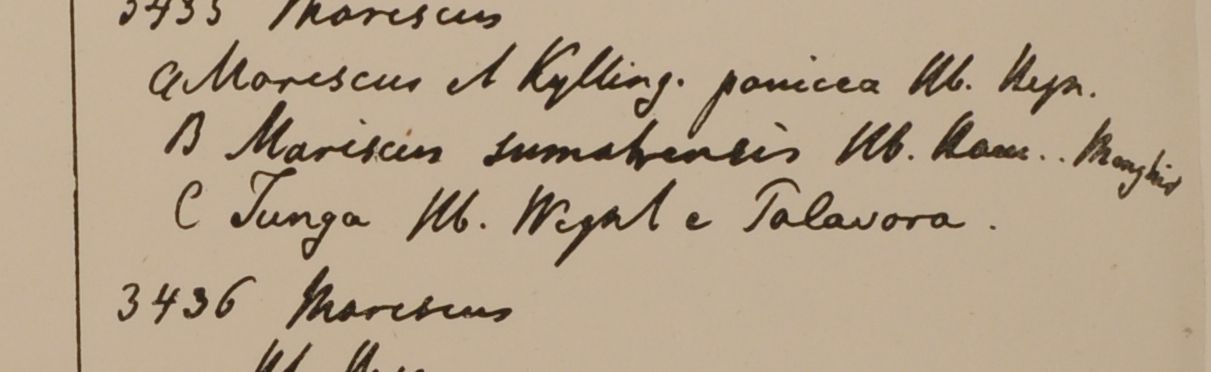 3435 Mariscus
A Mariscus et Kylling. panicea Hb. Heyn.
B Mariscus sumatrensis Hb. Ham.. Monghir
C Tunga Hb. Wight e Talavora.
3436 Mariscus
Hb.